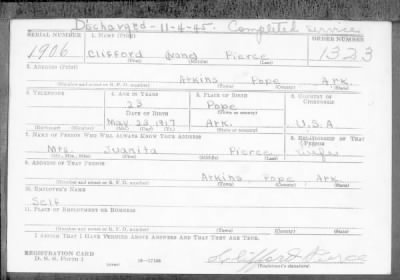 Discharged - 11-4-45. Completed service
SERIAL NUMBER 1. NAME (Print) ORDER NUMBER
1906 Clifford Pierce 1323
(First) (Middle) (Last)
2. ADDRESS (Print)
Atkins Pope Ark.
(Number and street or R. F. D. number) (Town) (County) (State)
3. TELEPHONE 4. AGE IN YEARS 5. PLACE OF BIRTH 6. COUNTRY OF CITIZENSHIP
23 Pope
DATE OF BIRTH (Town or county)
May 23, 1917 Ark. U.S.A
(Exchange) (Number) (Mo.) (Day) (Yr.) (State or country)
7. NAME OF PERSON WHO WILL ALWAYS KNOW YOUR ADDRESS 8. RELATIONSHIP OF THAT PERSON
Mrs. Juanita Pierce Wife
(Mr., Mrs., Miss) (First) (Middle) (Last)
9. ADDRESS OF THAT PERSON
Atkins Pope Ark.
(Number and street or R. F. D. number) (Town) (County) (State)
10. EMPLOYER'S NAME
Self
11. PLACE OF EMPLOYMENT OR BUSINESS
(Number and street or R. F. D. number) (Town) (County) (State)
I AFFIRM THAT I HAVE VERIFIED ABOVE ANSWERS AND THAT THEY ARE TRUE.
REGISTRATION CARD
D. S. S. Form 1 16-17105 Clifford Pierce
(Registrant's signature)